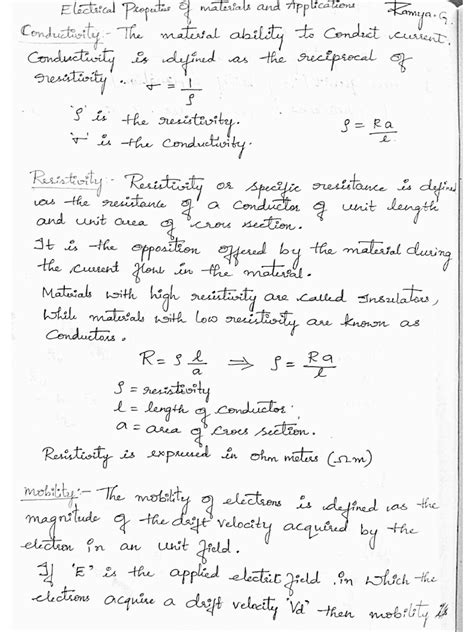 Electrical Properties of materials and Applications Ramya. G.
Conductivity :- The material ability to Conduct current.
Conductivity is defined as the reciprocal of
resistivity. σ = 1/ρ
'ρ' is the resistivity. ρ = Ra/l
'σ' is the Conductivity.
Resistivity :- Resistivity or specific resistance is defined
as the resistance of a conductor of unit length
and unit area of cross section.
It is the opposition offered by the material during
the current flow in the material.
Materials with high resistivity are called Insulators,
while materials with low resistivity are known as
Conductors.
R = ρ l/a ⇒ ρ = Ra/l
ρ = resistivity
l = length of conductor.
a = area of cross section.
Resistivity is expressed in ohm meters (Ωm)
Mobility :- The mobility of electrons is defined as the
magnitude of the drift velocity acquired by the
electron in an unit field.
If 'E' is the applied electric field, in which the
electrons acquire a drift velocity 'Vd' then mobility is